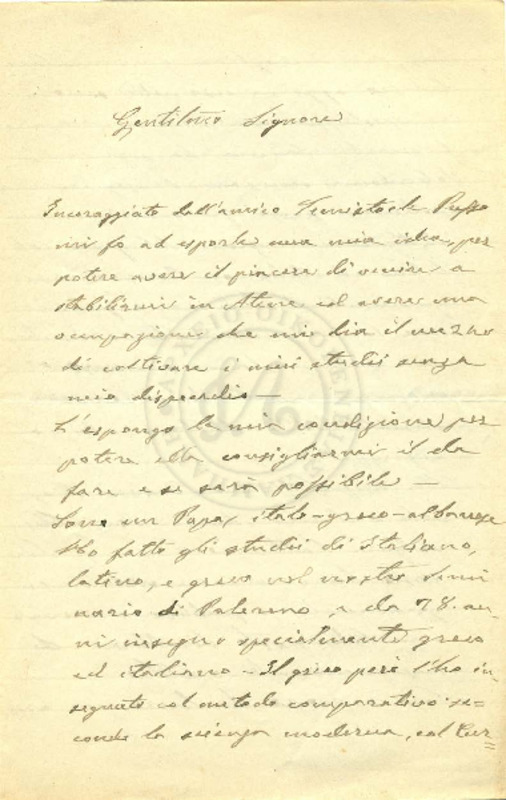 Gentilmo Signore
Incoraggiato dall'amico Temistocle Russo
mi fo ad esporle una mia idea, per
potere avere il piacere di venire a
stabilirmi in Atene ed avere una
occupazione che mi dia il mezzo
di coltivare i miei studii senza
mio dispendio —
L'espongo la mia condizione per
potere ella consigliarmi il da
fare e se sarà possibile —
Sono un Papas italo-greco-albanese
Ho fatto gli studii di italiano,
latino, e greco nel nostro Semi
nario di Palermo, e da 78 an-
ni insegno specialmente greco
ed italiano — Il greco però l'ho in
segnato col metodo comparativo se-
condo la scienza moderna, col Cur=